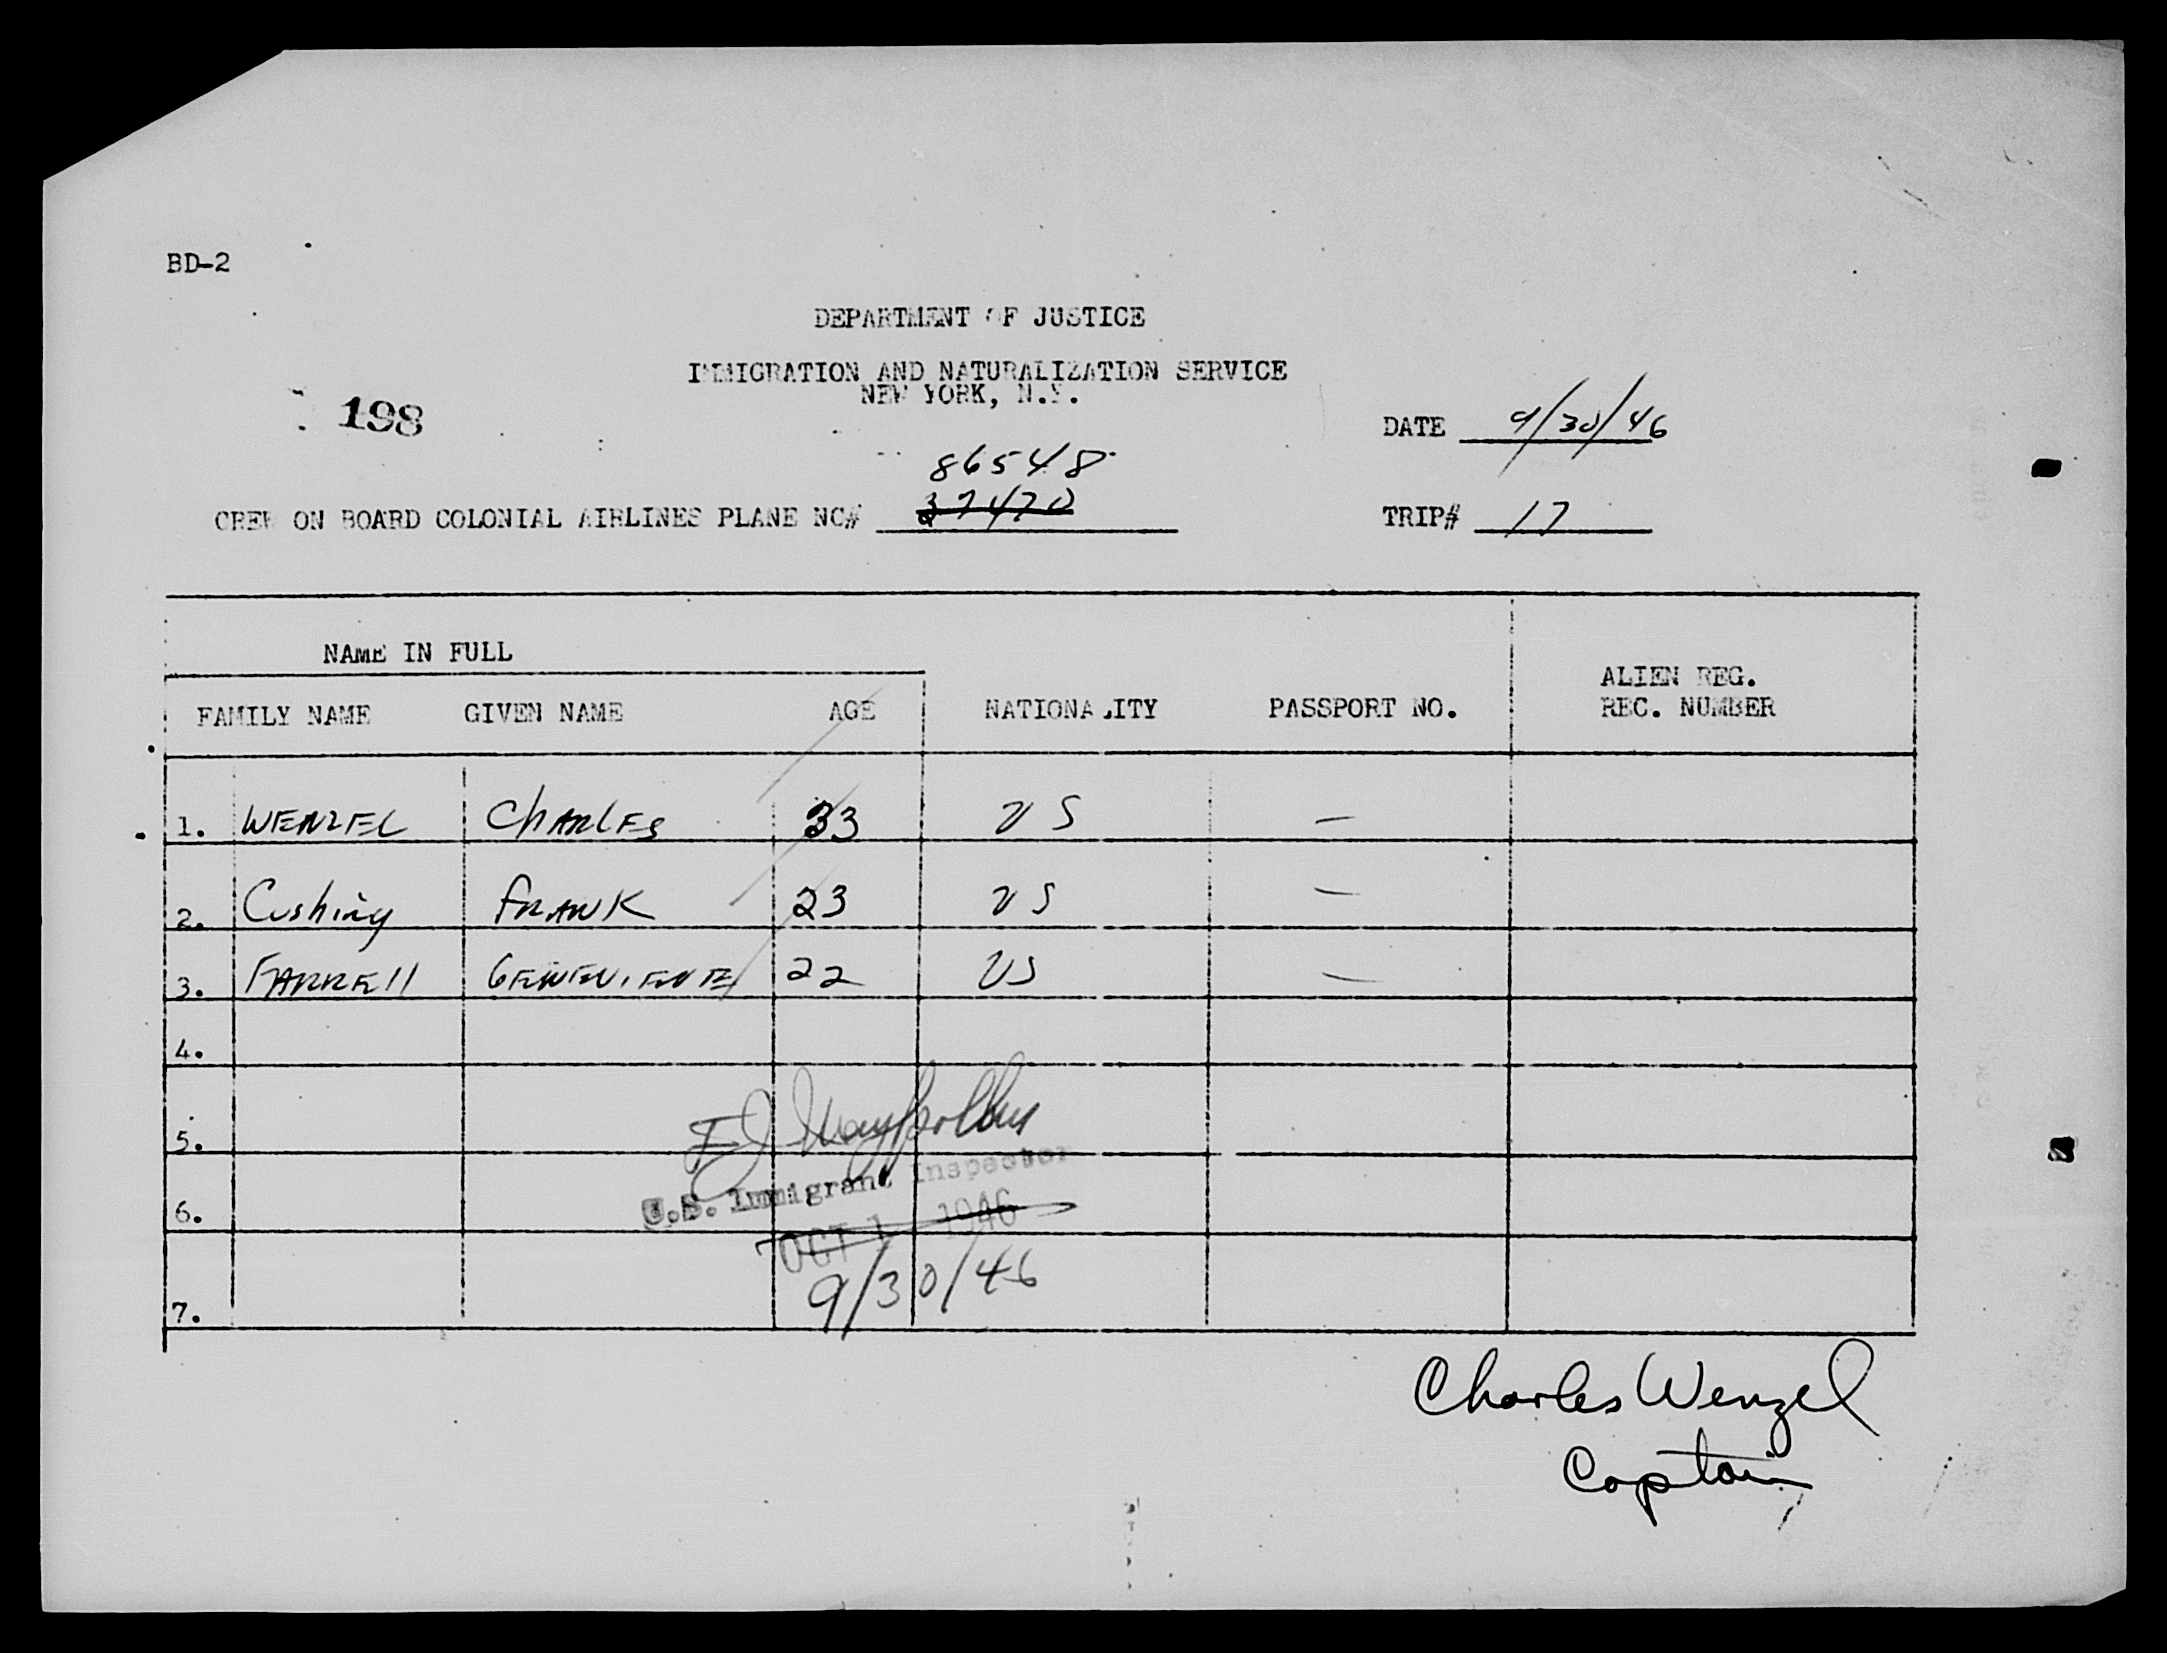 BD-2
DEPARTMENT OF JUSTICE
IMMIGRATION AND NATURALIZATION SERVICE
NEW YORK, N.Y.
198
DATE 9/30/46
86548
CREW ON BOARD COLONIAL AIRLINES PLANE NC# 37470
TRIP# 17
NAME IN FULL
FAMILY NAME GIVEN NAME AGE NATIONALITY PASSPORT NO. ALIEN REG. REC. NUMBER
1. WENZEL CHARLES 33 US —
2. Cushing FRANK 23 US —
3. FARRELL GENEVIEVE 22 US —
4.
5.
E J
U.S. Immigrant Inspector
6.
OCT 1 1946
9/30/46
7.
Charles Wenzel
Captain